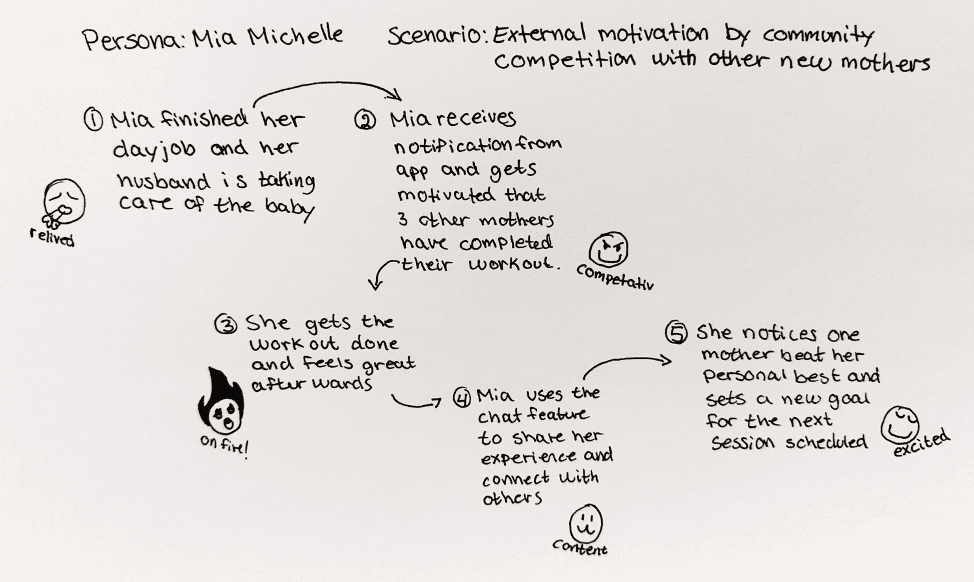 Persona: Mia Michelle
Scenario: External motivation by community
competition with other new mothers
① Mia finished her
dayjob and her
husband is taking
care of the baby
relived
② Mia receives
notification from
app and gets
motivated that
3 other mothers
have completed
their workout.
competativ
③ She gets the
workout done
and feels great
afterwards
on fire!
④ Mia uses the
chat feature
to share her
experience and
connect with
others
content
⑤ She notices one
mother beat her
personal best and
sets a new goal
for the next
session scheduled
excited